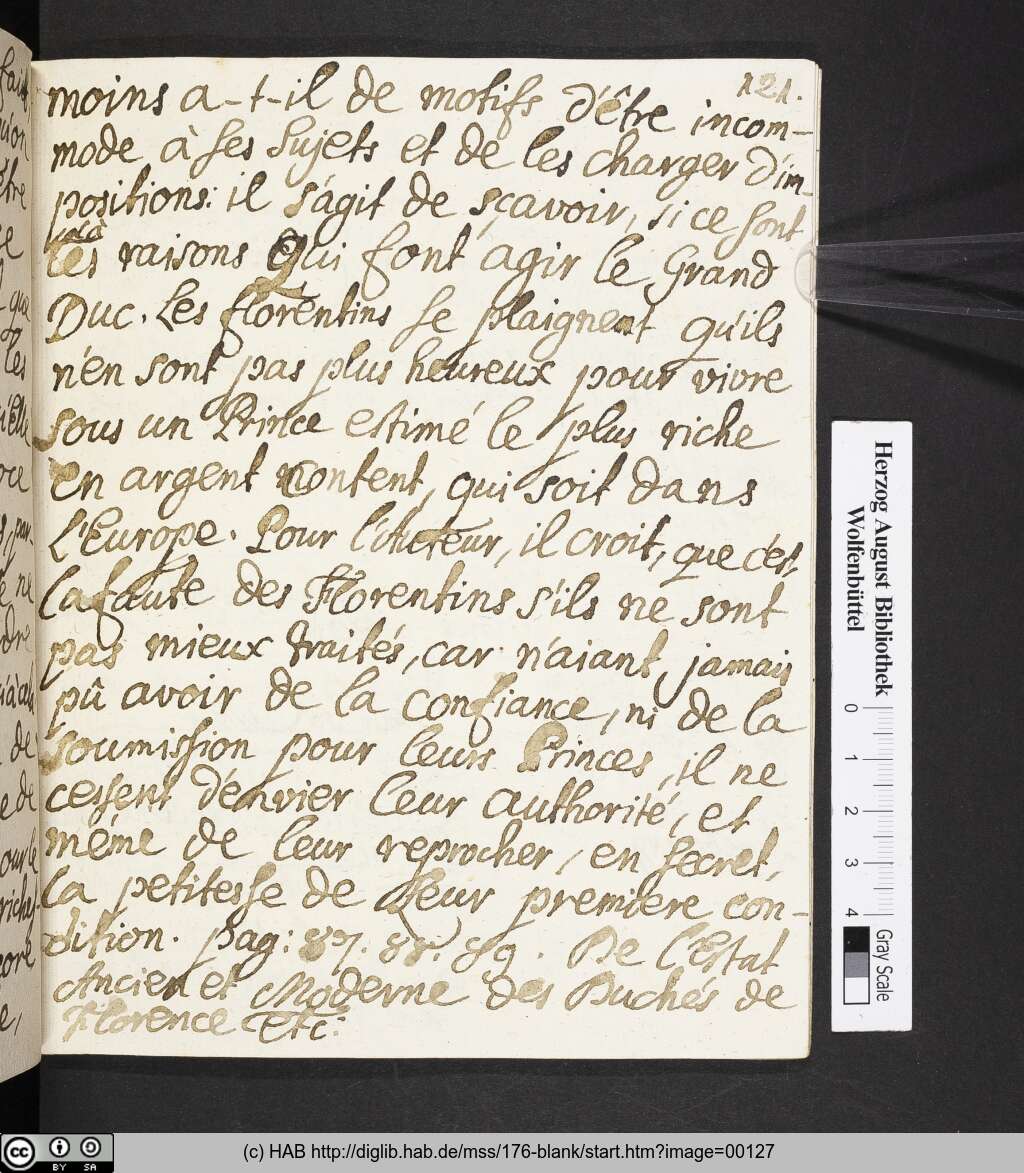 121.
moins a-t-il de motifs d'être incom-
mode à ses Sujets et de les charger d'im-
positions: il s'agit de sçavoir, si ce sont
les raisons Qui font agir le Grand
Duc. Les florentins se plaignent qu'ils
n'en sont pas plus heureux pour vivre
sous un Prince estimé le plus riche
en argent content, qui soit dans
L'Europe. Pour l'Auteur, il croit, que c'est
la faute des Florentins s'ils ne sont
pas mieux traités, car n'aiant jamais
pû avoir de la confiance, ni de la
soumission pour leurs Princes, il ne
cessent d'envier leur authorité, et
méme de leur reprocher, en secret,
la petitesse de leur premiere con-
dition. pag: 87. 88. 89. De l'Estat
Ancien et Moderne des Duchés de
Florence etc:
Herzog August Bibliothek
Wolfenbüttel
0 1 2 3 4
Gray Scale
(c) HAB http://diglib.hab.de/mss/176-blank/start.htm?image=00127
cc BY SA